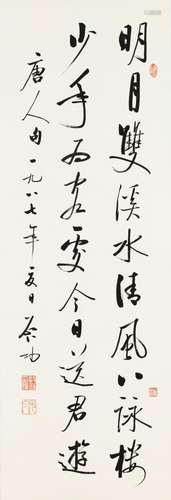 明月雙溪水清風八詠樓
少年為客處今日送君遊
唐人句一九八七年夏日啟功